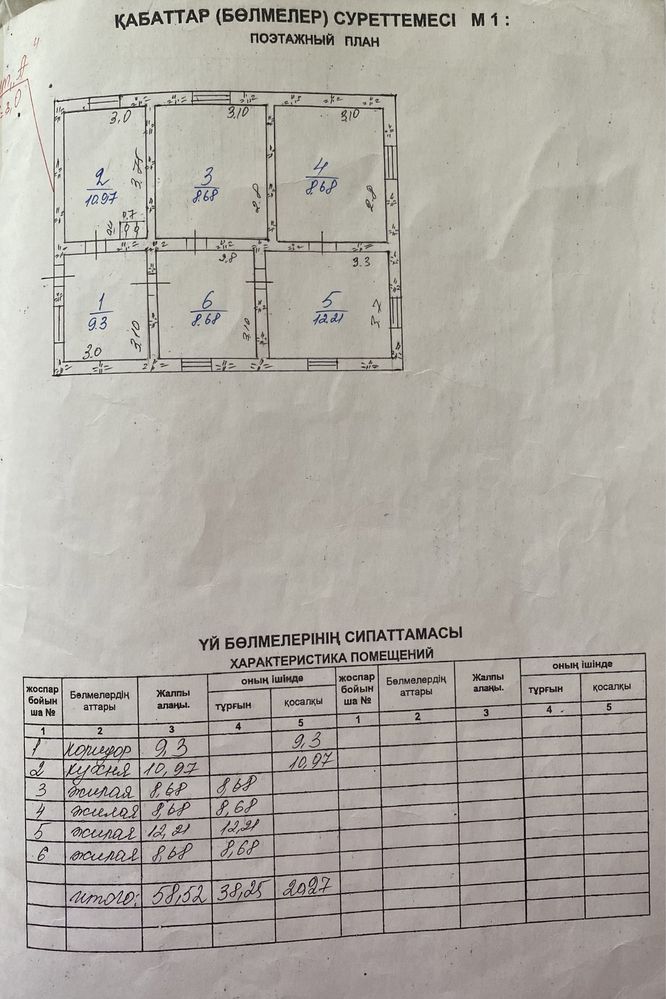 ҚАБАТТАР (БӨЛМЕЛЕР) СУРЕТТЕМЕСІ М 1 :
ПОЭТАЖНЫЙ ПЛАН
3,0 3,10 3,10
2 10.97 3.75
3 8.68 2.8
4 8.68 2.8
0,7
2.8 3.3
1 9.3 3.10
6 8.68 3.10
5 12.21
3.0
ҮЙ БӨЛМЕЛЕРІНІҢ СИПАТТАМАСЫ
ХАРАКТЕРИСТИКА ПОМЕЩЕНИЙ
жоспар бойын ша № Бөлмелердің аттары Жалпы алаңы. оның ішінде тұрғын қосалқы жоспар бойын ша № Бөлмелердің аттары Жалпы алаңы. оның ішінде тұрғын қосалқы
1 2 3 4 5 1 2 3 4 5
1 коридор 9,3 9,3
2 кухня 10,97 10,97
3 жилая 8,68 8,68
4 жилая 8,68 8,68
5 жилая 12,21 12,21
6 жилая 8,68 8,68
итого: 58,52 38,25 20,27